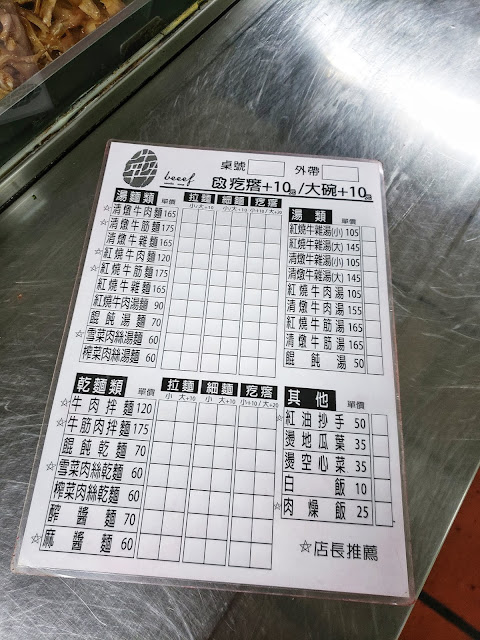 桌號 外帶
beeef
疙瘩+10元/大碗+10元
湯麵類 單價 拉麵 細麵 疙瘩
小/大+10 小/大+10 小+10/大+20
☆清燉牛肉麵 165
☆清燉牛筋麵 175
清燉牛雜麵 165
紅燒牛肉麵 120
☆紅燒牛筋麵 175
紅燒牛雜麵 165
紅燒牛肉湯麵 90
餛飩湯麵 70
☆雪菜肉絲湯麵 60
榨菜肉絲湯麵 60
湯類 單價
紅燒牛雜湯(小) 105
紅燒牛雜湯(大) 145
清燉牛雜湯(小) 105
清燉牛雜湯(大) 145
紅燒牛肉湯 105
清燉牛肉湯 155
紅燒牛筋湯 165
清燉牛筋湯 165
餛飩湯 50
乾麵類 單價 拉麵 細麵 疙瘩
小 大+10 小 大+10 小+10/大+20
☆牛肉拌麵 120
☆牛筋肉拌麵 175
餛飩乾麵 60
☆雪菜肉絲乾麵 60
榨菜肉絲乾麵 60
醡醬麵 70
☆麻醬麵 60
其他 單價
☆紅油抄手 50
燙地瓜葉 35
燙空心菜 35
白飯 10
☆肉燥飯 25
☆店長推薦